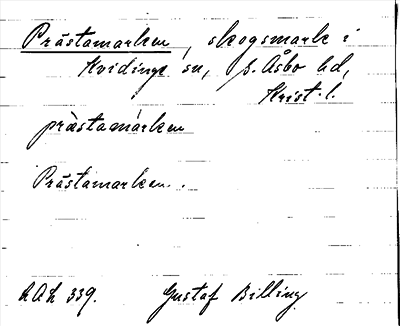 Prästamarken, skogsmark i
Kvidinge sn, S. Åsbo hd,
Krist. l.
prästamárken
Prästamarken.
LAL 339. Gustaf Billing